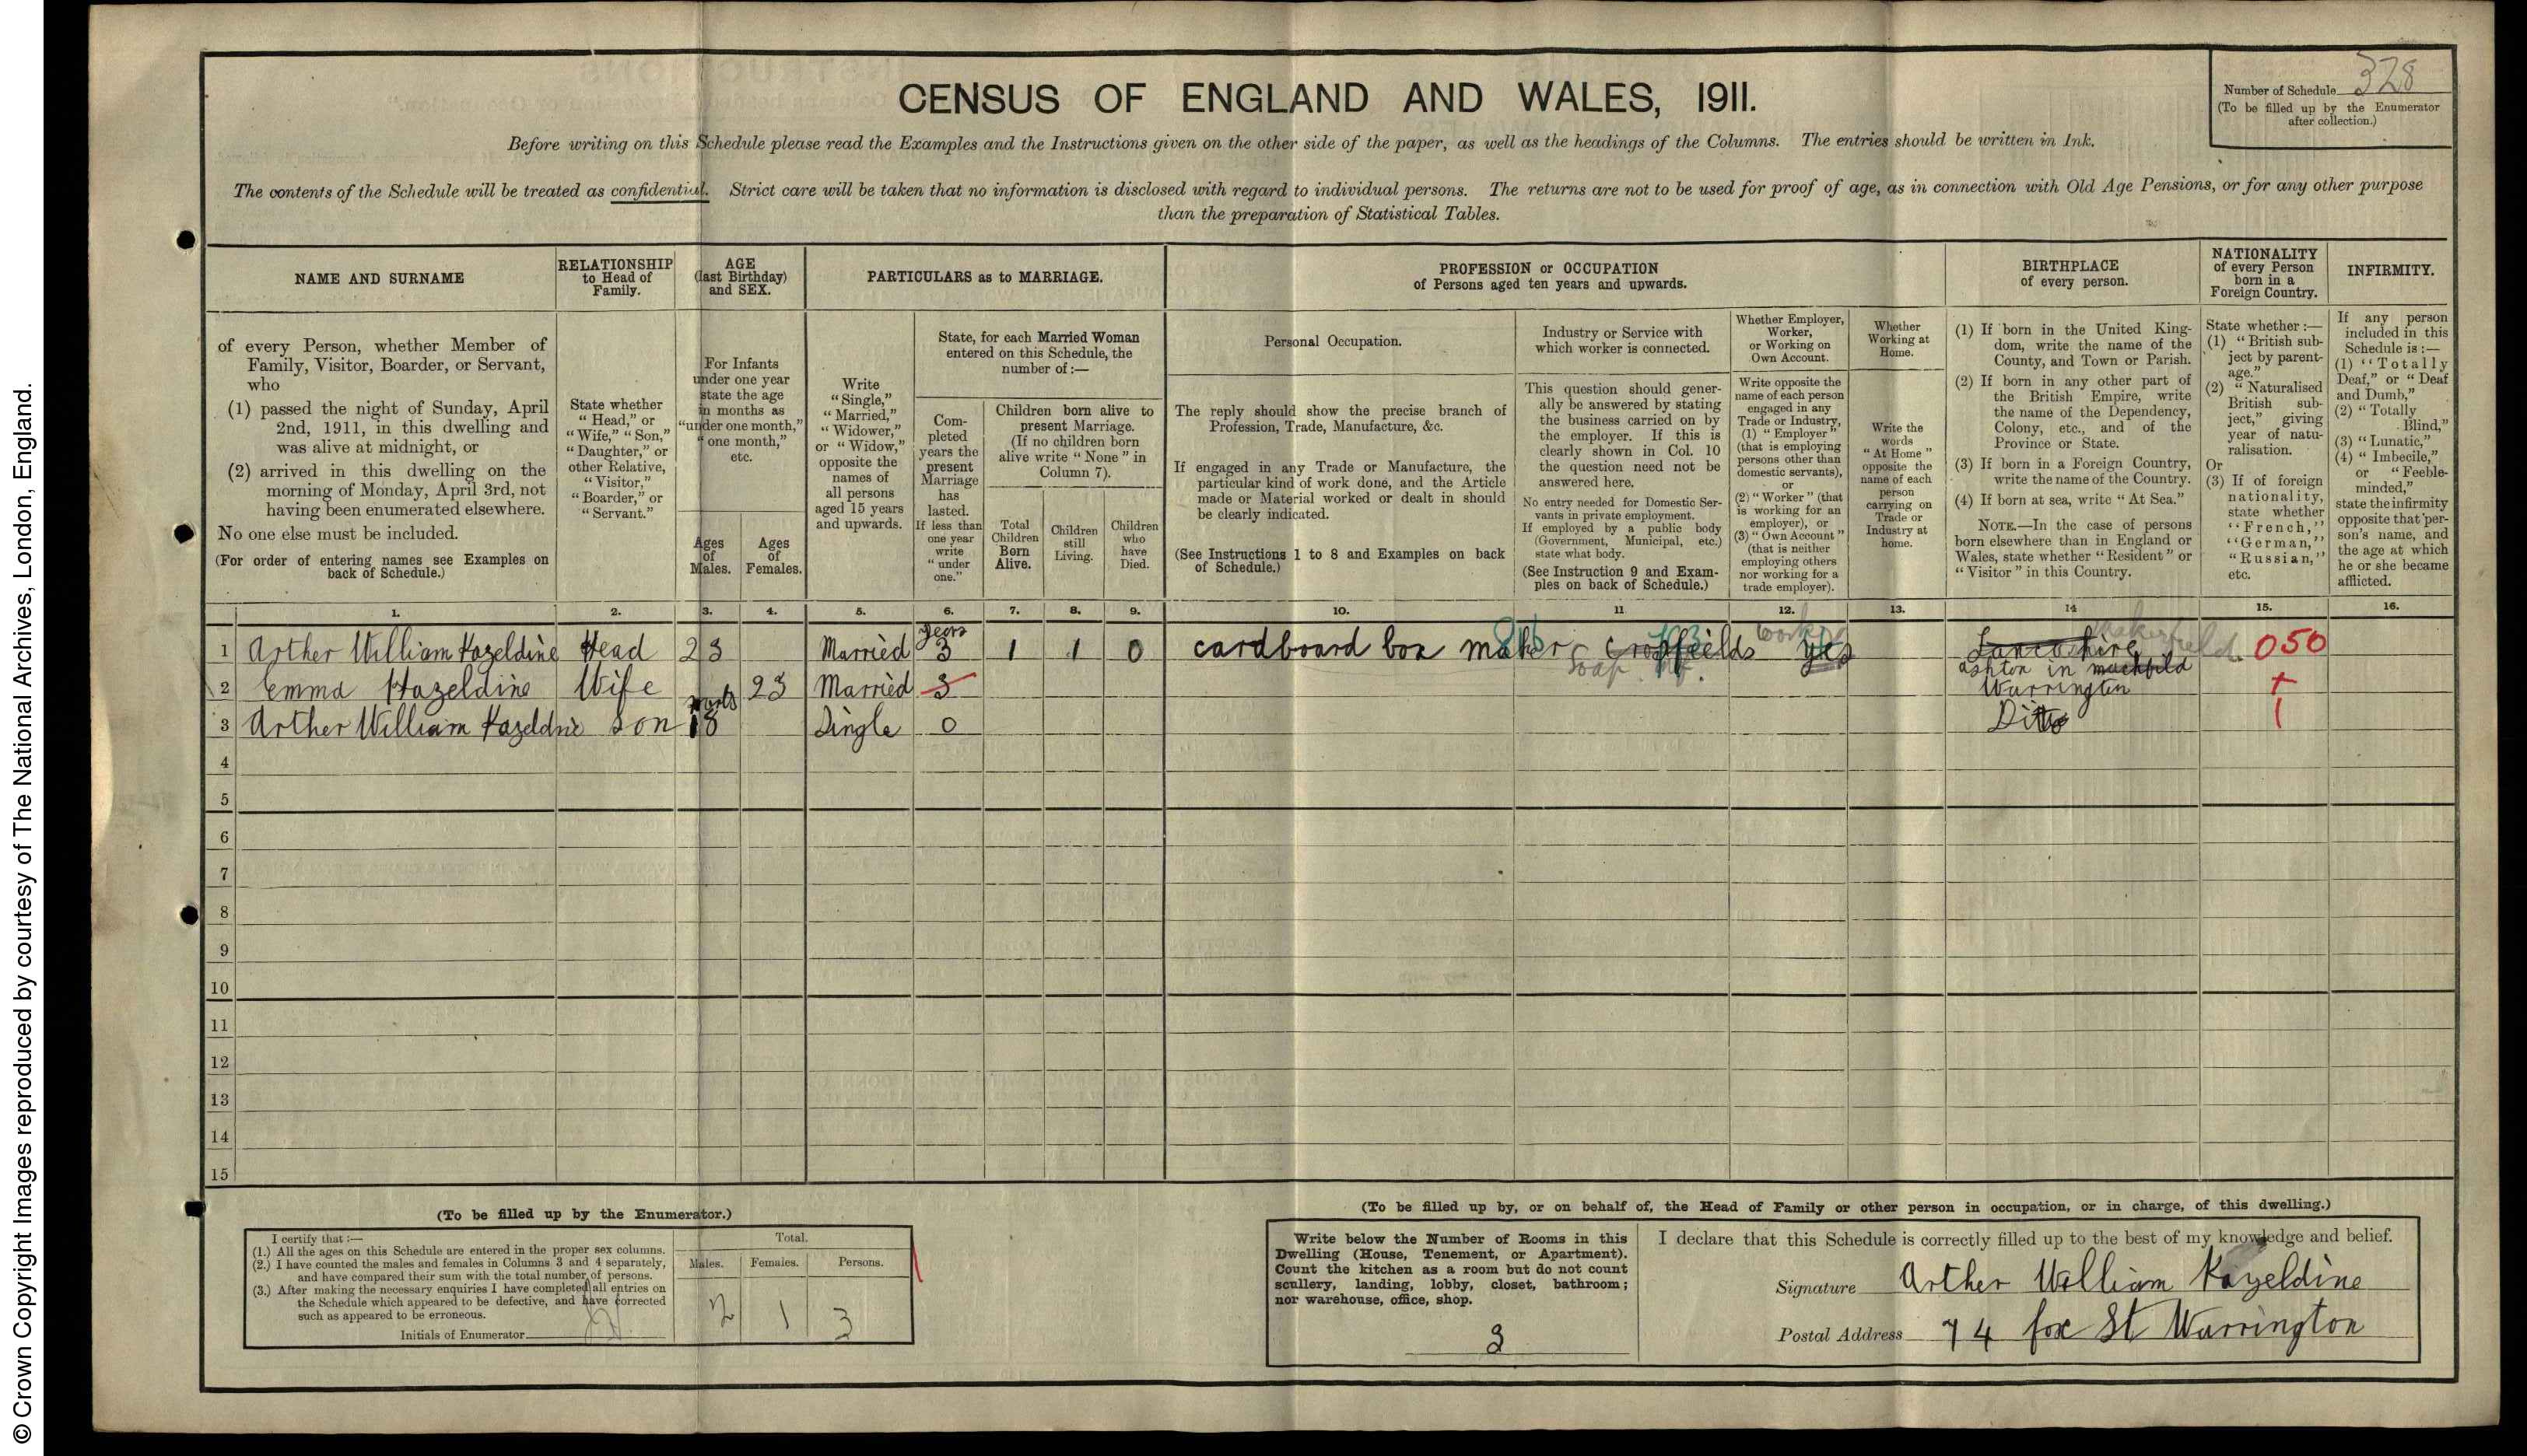 © Crown Copyright Images reproduced by courtesy of The National Archives, London, England.
CENSUS OF ENGLAND AND WALES, 1911.
Number of Schedule 328
(To be filled up by the Enumerator
after collection.)
Before writing on this Schedule please read the Examples and the Instructions given on the other side of the paper, as well as the headings of the Columns. The entries should be written in Ink.
The contents of the Schedule will be treated as confidential. Strict care will be taken that no information is disclosed with regard to individual persons. The returns are not to be used for proof of age, as in connection with Old Age Pensions, or for any other purpose
than the preparation of Statistical Tables.
NAME AND SURNAME
of every Person, whether Member of
Family, Visitor, Boarder, or Servant,
who
(1) passed the night of Sunday, April
2nd, 1911, in this dwelling and
was alive at midnight, or
(2) arrived in this dwelling on the
morning of Monday, April 3rd, not
having been enumerated elsewhere.
No one else must be included.
(For order of entering names see Examples on
back of Schedule.)
RELATIONSHIP
to Head of
Family.
State whether
"Head," or
"Wife," "Son,"
"Daughter," or
other Relative,
"Visitor,"
"Boarder," or
"Servant."
AGE
(last Birthday)
and SEX.
For Infants
under one year
state the age
in months as
"under one month,"
"one month,"
etc.
Ages
of
Males.
Ages
of
Females.
PARTICULARS as to MARRIAGE.
Write
"Single,"
"Married,"
"Widower,"
or "Widow,"
opposite the
names of
all persons
aged 15 years
and upwards.
State, for each Married Woman
entered on this Schedule, the
number of:—
Com-
pleted
years the
present
Marriage
has
lasted.
If less than
one year
write
"under
one."
Children born alive to
present Marriage.
(If no children born
alive write "None" in
Column 7).
Total
Children
Born
Alive.
Children
still
Living.
Children
who
have
Died.
PROFESSION or OCCUPATION
of Persons aged ten years and upwards.
Personal Occupation.
The reply should show the precise branch of
Profession, Trade, Manufacture, &c.
If engaged in any Trade or Manufacture, the
particular kind of work done, and the Article
made or Material worked or dealt in should
be clearly indicated.
(See Instructions 1 to 8 and Examples on back
of Schedule.)
Industry or Service with
which worker is connected.
This question should gener-
ally be answered by stating
the business carried on by
the employer. If this is
clearly shown in Col. 10
the question need not be
answered here.
No entry needed for Domestic Ser-
vants in private employment.
If employed by a public body
(Government, Municipal, etc.)
state what body.
(See Instruction 9 and Exam-
ples on back of Schedule.)
Whether Employer,
Worker,
or Working on
Own Account.
Write opposite the
name of each person
engaged in any
Trade or Industry,
(1) "Employer"
(that is employing
persons other than
domestic servants),
or
(2) "Worker" (that
is working for an
employer), or
(3) "Own Account"
(that is neither
employing others
nor working for a
trade employer).
Whether
Working at
Home.
Write the
words
"At Home"
opposite the
name of each
person
carrying on
Trade or
Industry at
home.
BIRTHPLACE
of every person.
(1) If born in the United King-
dom, write the name of the
County, and Town or Parish.
(2) If born in any other part of
the British Empire, write
the name of the Dependency,
Colony, etc., and of the
Province or State.
(3) If born in a Foreign Country,
write the name of the Country.
(4) If born at sea, write "At Sea."
NOTE.—In the case of persons
born elsewhere than in England or
Wales, state whether "Resident" or
"Visitor" in this Country.
NATIONALITY
of every Person
born in a
Foreign Country.
State whether :—
(1) "British sub-
ject by parent-
age."
(2) "Naturalised
British sub-
ject," giving
year of natu-
ralisation.
Or
(3) If of foreign
nationality,
state whether
"French,"
"German,"
"Russian,"
etc.
INFIRMITY.
If any person
included in this
Schedule is :—
(1) "Totally
Deaf," or "Deaf
and Dumb,"
(2) "Totally
Blind,"
(3) "Lunatic,"
(4) "Imbecile,"
or "Feeble-
minded,"
state the infirmity
opposite that per-
son's name, and
the age at which
he or she became
afflicted.
1. 2. 3. 4. 5. 6. 7. 8. 9. 10. 11 12. 13. 14 15. 16.
years worker Makerfield
1 Arther William Hazeldine Head 23 Married 3 1 1 0 cardboard box maker Crosfields yes Lancashire 050
Soap Mf. ashton in
2 Emma Hazeldine Wife 23 Married 3 Warrington +
3 Arther William Hazeldine Son 18 Single 0 Ditto 1
4
5
6
7
8
9
10
11
12
13
14
15
(To be filled up by the Enumerator.)
I certify that :—
(1.) All the ages on this Schedule are entered in the proper sex columns.
(2.) I have counted the males and females in Columns 3 and 4 separately,
and have compared their sum with the total number of persons.
(3.) After making the necessary enquiries I have completed all entries on
the Schedule which appeared to be defective, and have corrected
such as appeared to be erroneous.
Initials of Enumerator
Total.
Males. Females. Persons.
2 1 3
(To be filled up by, or on behalf of, the Head of Family or other person in occupation, or in charge, of this dwelling.)
Write below the Number of Rooms in this
Dwelling (House, Tenement, or Apartment).
Count the kitchen as a room but do not count
scullery, landing, lobby, closet, bathroom;
nor warehouse, office, shop.
3
I declare that this Schedule is correctly filled up to the best of my knowledge and belief.
Signature Arther William Hazeldine
Postal Address 74 fox St Warrington